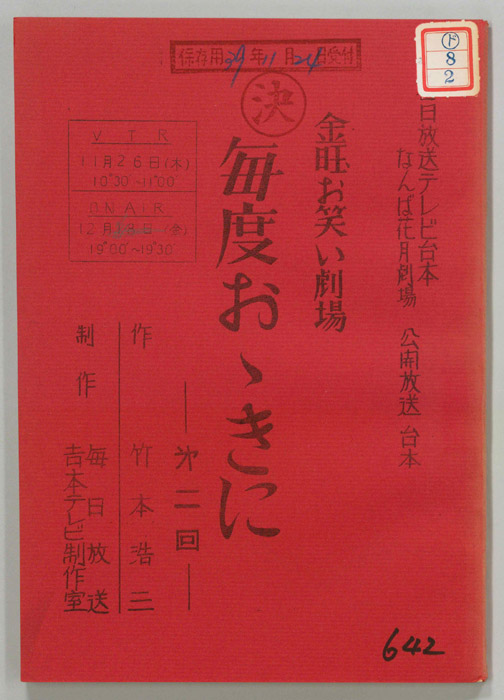 保存用39年11月24日受付
ド
8
2
日放送テレビ台本
なんば花月劇場 公開放送台本
金旺お笑い劇場
決
毎度おゝきに
―第二回―
VTR
11月26日(木)
10°30~11°00
ON AIR
12月18日(金)
19°00~19°30
作 竹本浩三
制作 毎日放送
吉本テレビ制作室
642